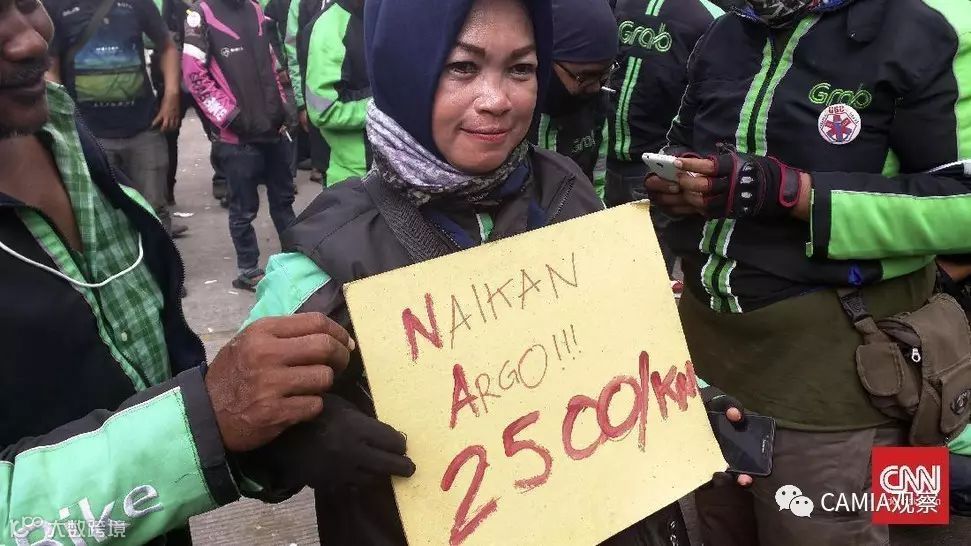 Grab
Grab
NAIKAN
ARGO!!!
2500/KM
Bike
CNN
CAMIA观察
大数跨境